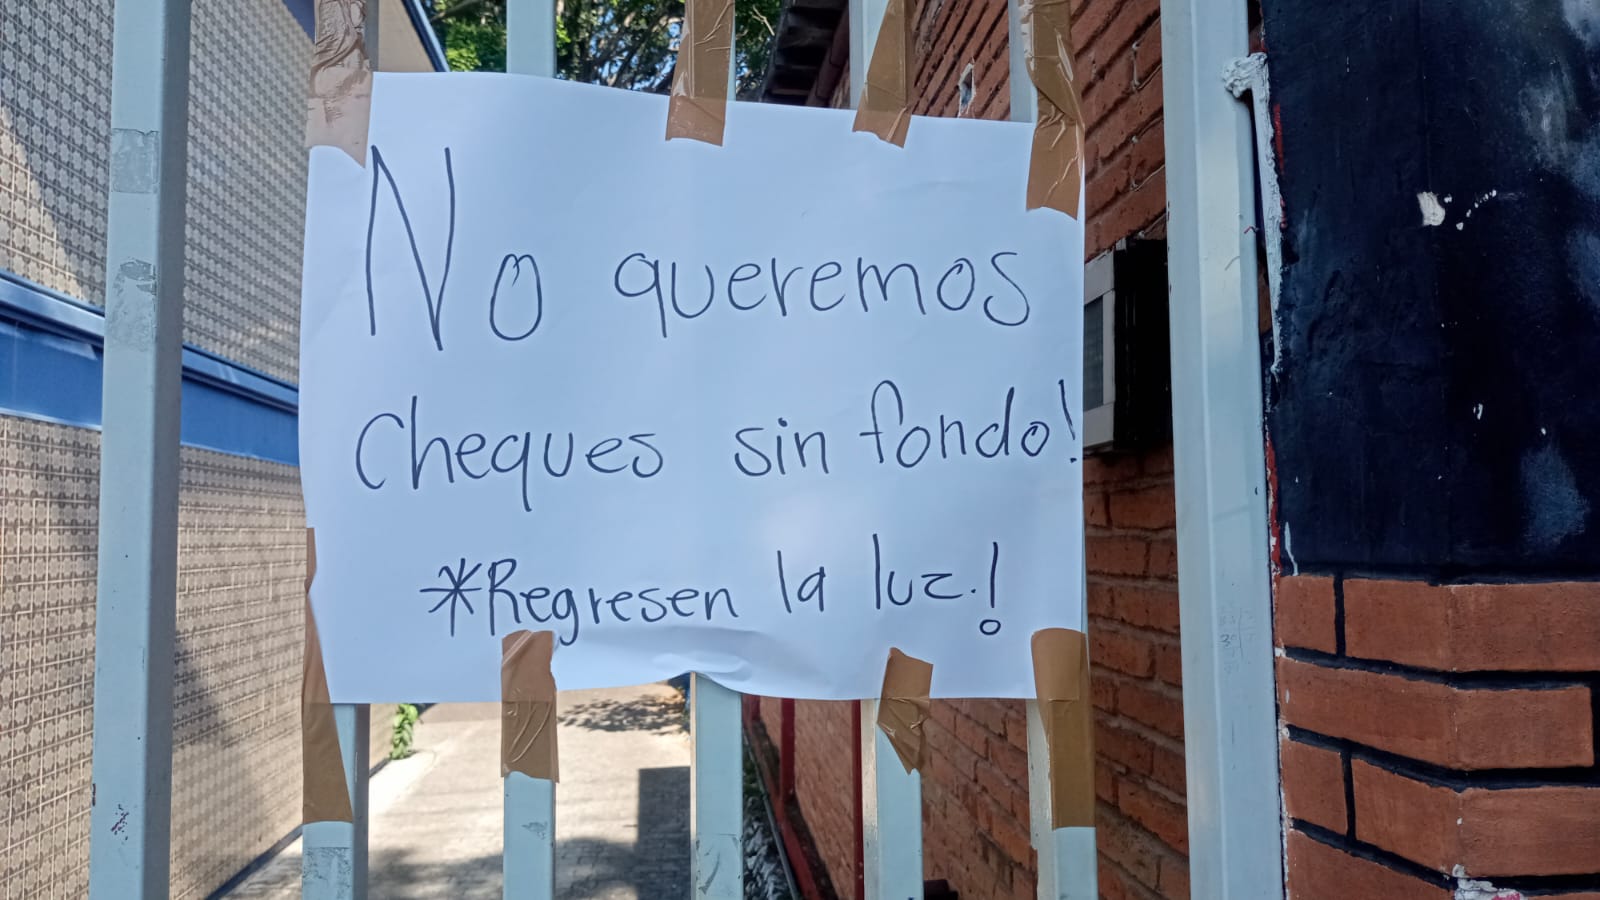 No queremos
Cheques sin fondo!
*Regresen la luz.!